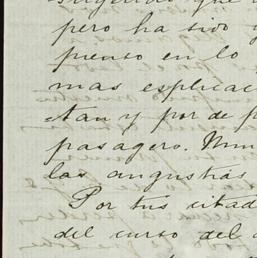 pero ha sido
pienso en lo
mas esplicac
etan y por de p
pasagero. Nun
las angustias
Por tus citad
del curso del